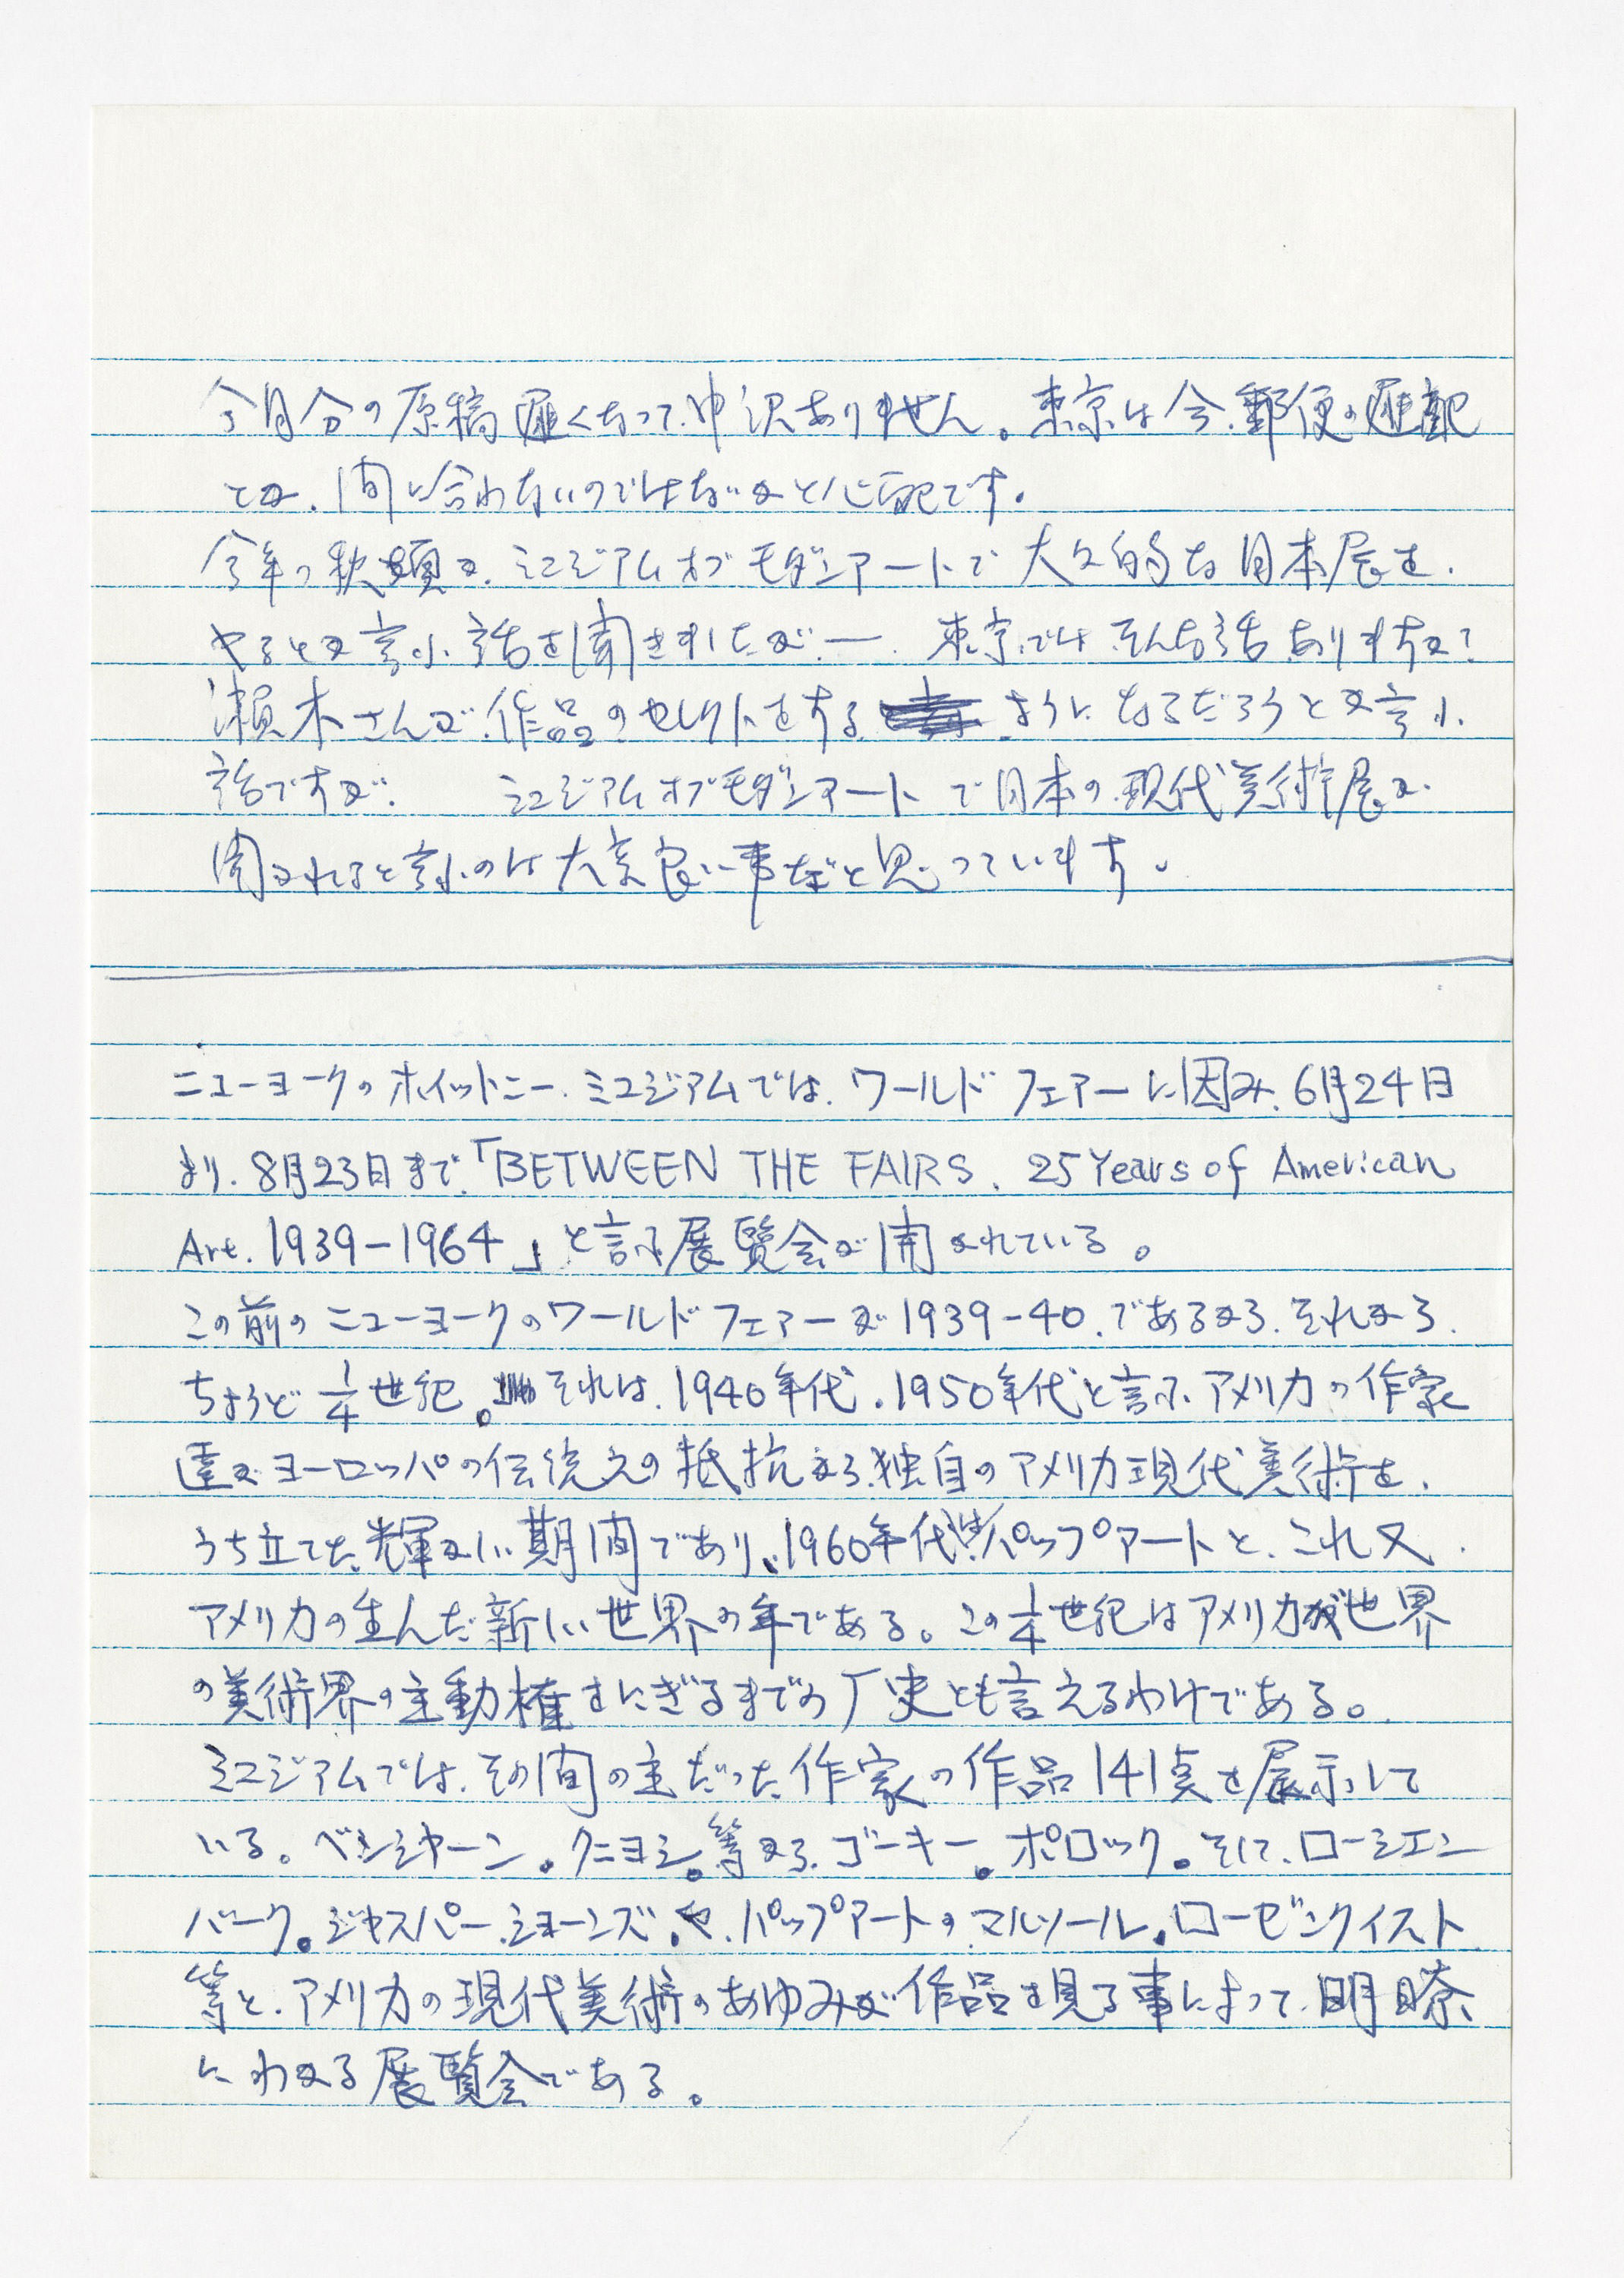 今月分の原稿遅くなって、申訳ありません。東京は今、郵便の遅配
とか、間に合わないのではないかと心配です。
今年の秋頃か、ミュジアムオブモダンアートで大々的な日本展を、
やるとか言ふ話を聞きましたが、ー 東京では、そんな話ありますか?
瀬木さんが、作品のセレクトをする ように、なるだろうとか言ふ
話ですが、 ミュジアムオブモダンアートで日本の現代美術展が、
開かれると言ふのは大変良い事だと思っています。
ニューヨークのホイットニー、ミュジアムでは、ワールドフェアーに因み、6月24日
より、8月23日まで、「BETWEEN THE FAIRS. 25 Years of American
Art. 1939-1964」と言ふ展覧会が開かれている。
この前のニューヨークのワールドフェアーが1939-40.であるから、それから、
ちょうど1/4世紀。それは、1940年代、1950年代と言ふアメリカの作家
達がヨーロッパの伝統えの抵抗から独自のアメリカ現代美術を、
うち立てた、輝かしい期間であり、1960年代パップアートと、これ又、
アメリカの生んだ新しい世界の年である。この1/4世紀はアメリカが世界
の美術界の主動権をにぎるまでの厂史とも言えるわけである。
ミュジアムでは、その間の主だった作家の作品141点を展示して
いる。ベンシャーン。クニヨシ。等から、ゴーキー。ポロック。そして、ローシェン
バーク。ジャスパー、ショーンズ、や、パップアートの、マルソール。ローゼンクイスト
等と、アメリカの現代美術のあゆみが作品を見る事によって、明瞭
にわかる展覧会である。